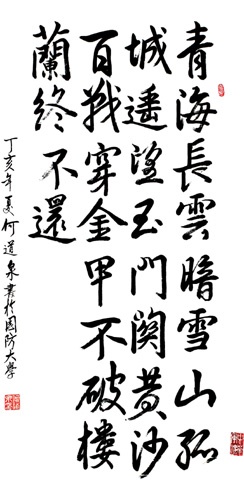 青海長雲暗雪山孤
城遥望玉門関黄沙
百战穿金甲不破楼
蘭終不還
丁亥年夏何道泉書於國防大學